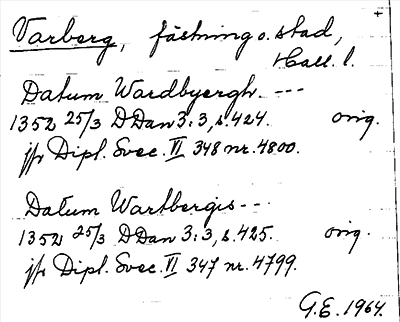 +
Varberg, fästning o. stad,
Hall. l.
Datum Wardbyergh. ---
1352 25/3 DDan 3:3, s. 424. orig.
jfr Dipl. Svec. VI 348 nr. 4800.
Datum Wartbergis ---
1352 25/3 DDan 3:3, s. 425. orig.
jfr Dipl. Svec. VI 347 nr. 4799.
G.E. 1964.